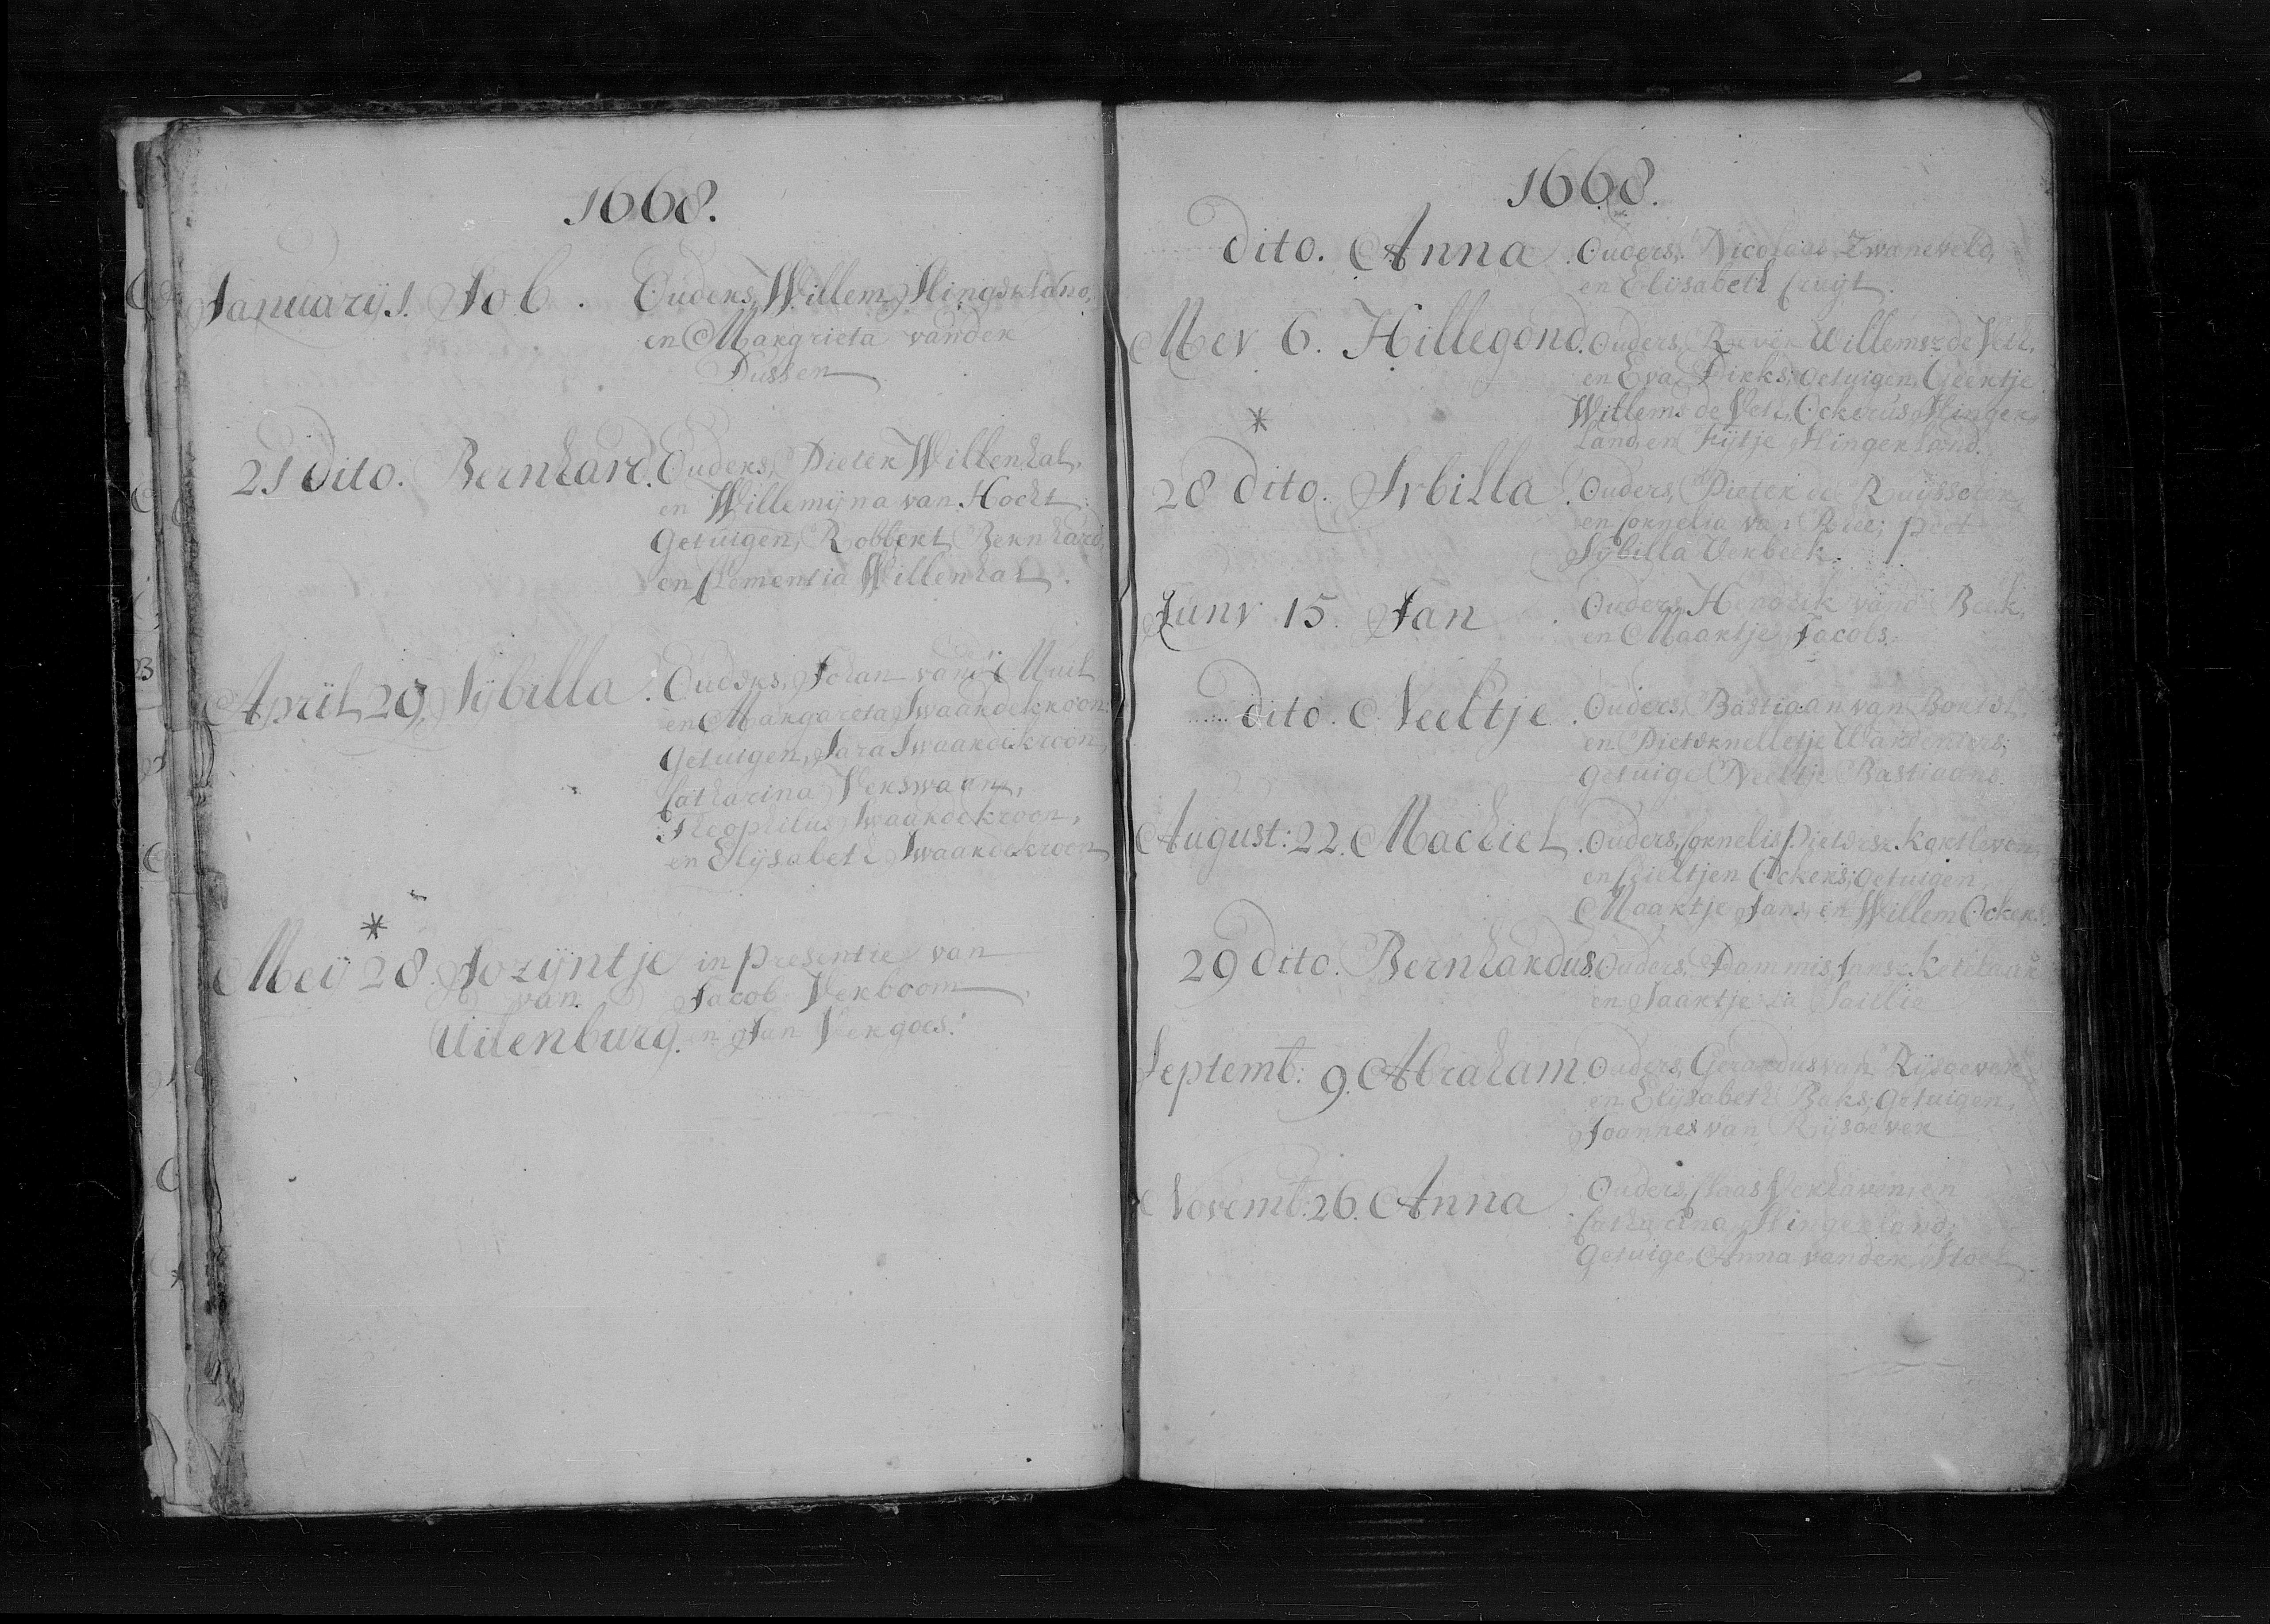 1668.
Januarij 1. Job. Ouders, Willem Slingerland,
en Margrieta vander
Dussen
21 dito. Bernhard. Ouders, Pieter Willenhal,
en Willemijna van Hocht;
Getuigen, Robbert Bernhard,
en Clementia Willenhal.
April 29. Sÿbilla. Ouders, Johan van
en Margareta Swaardekroon;
Getuigen, Sara Swaardekroon,
Catharina Verswaan,
Theophilus Swaardekroon,
en Elÿsabeth Swaardekroon
*
Meÿ 28. Jozÿntje in presentie van
van Jacob Verboom
Uilenburg. en Jan Vergoes.
1668.
dito. Anna. Ouders, Nicolaas Zwaneveld,
en Elisabeth Cruijt.
Mey 6. Hillegond. Ouders, Willemsz de Veth,
en Eva Dirks; Getuigen, Geertje
Willems de Veth, Ockerus Slinger
land, en Fijtje Slingerland.
*
28 dito. Sybilla. Ouders, Pieter de
en Cornelia van; peet
Sybilla Verbeek.
Juny 15. Jan. Ouders, Hendrik vand' Beek,
en Maartje Jacobs.
dito. Neeltje. Ouders, Bastiaan van
en Pieternelletje Wardeniers;
getuige Neeltje Bastiaans.
August: 22. Machiel. Ouders, Cornelis Pietersz.
en Ockers; getuigen
Maartje Jans, en Willem Ockers.
29 dito. Bernhardus. Ouders, Dammis Jansz Ketelaar
en Saartje la Saillie
Septemb: 9. Abraham. Ouders, Gerardus van Rÿsoever
en Elÿsabeth Baks, getuigen,
Joannes van Rÿsoever
Novemb: 26. Anna. Ouders, Claas Verhaven, en
Catharina Slingerland;
Getuige Anna vander Stoel